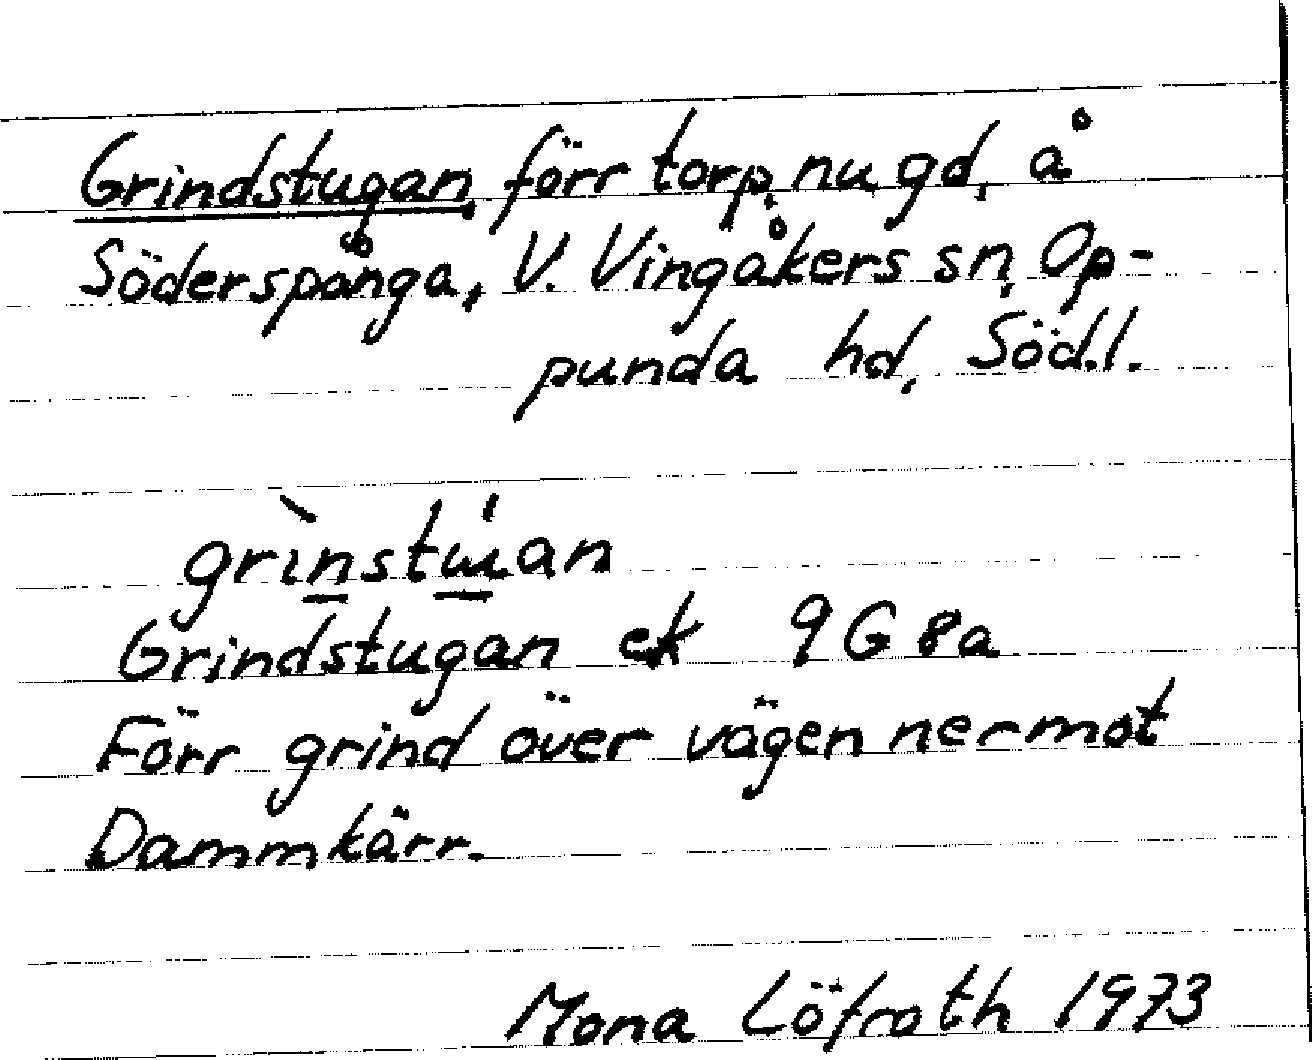 Grindstugan, förr torp, nu gd, å
Söderspånga, V. Vingåkers sn, Op-
punda hd, Söd.l.
Grindstugan ek 9G 8a
Förr grind över vägen ner mot
Dammkärr.
Mona Löfroth 1973